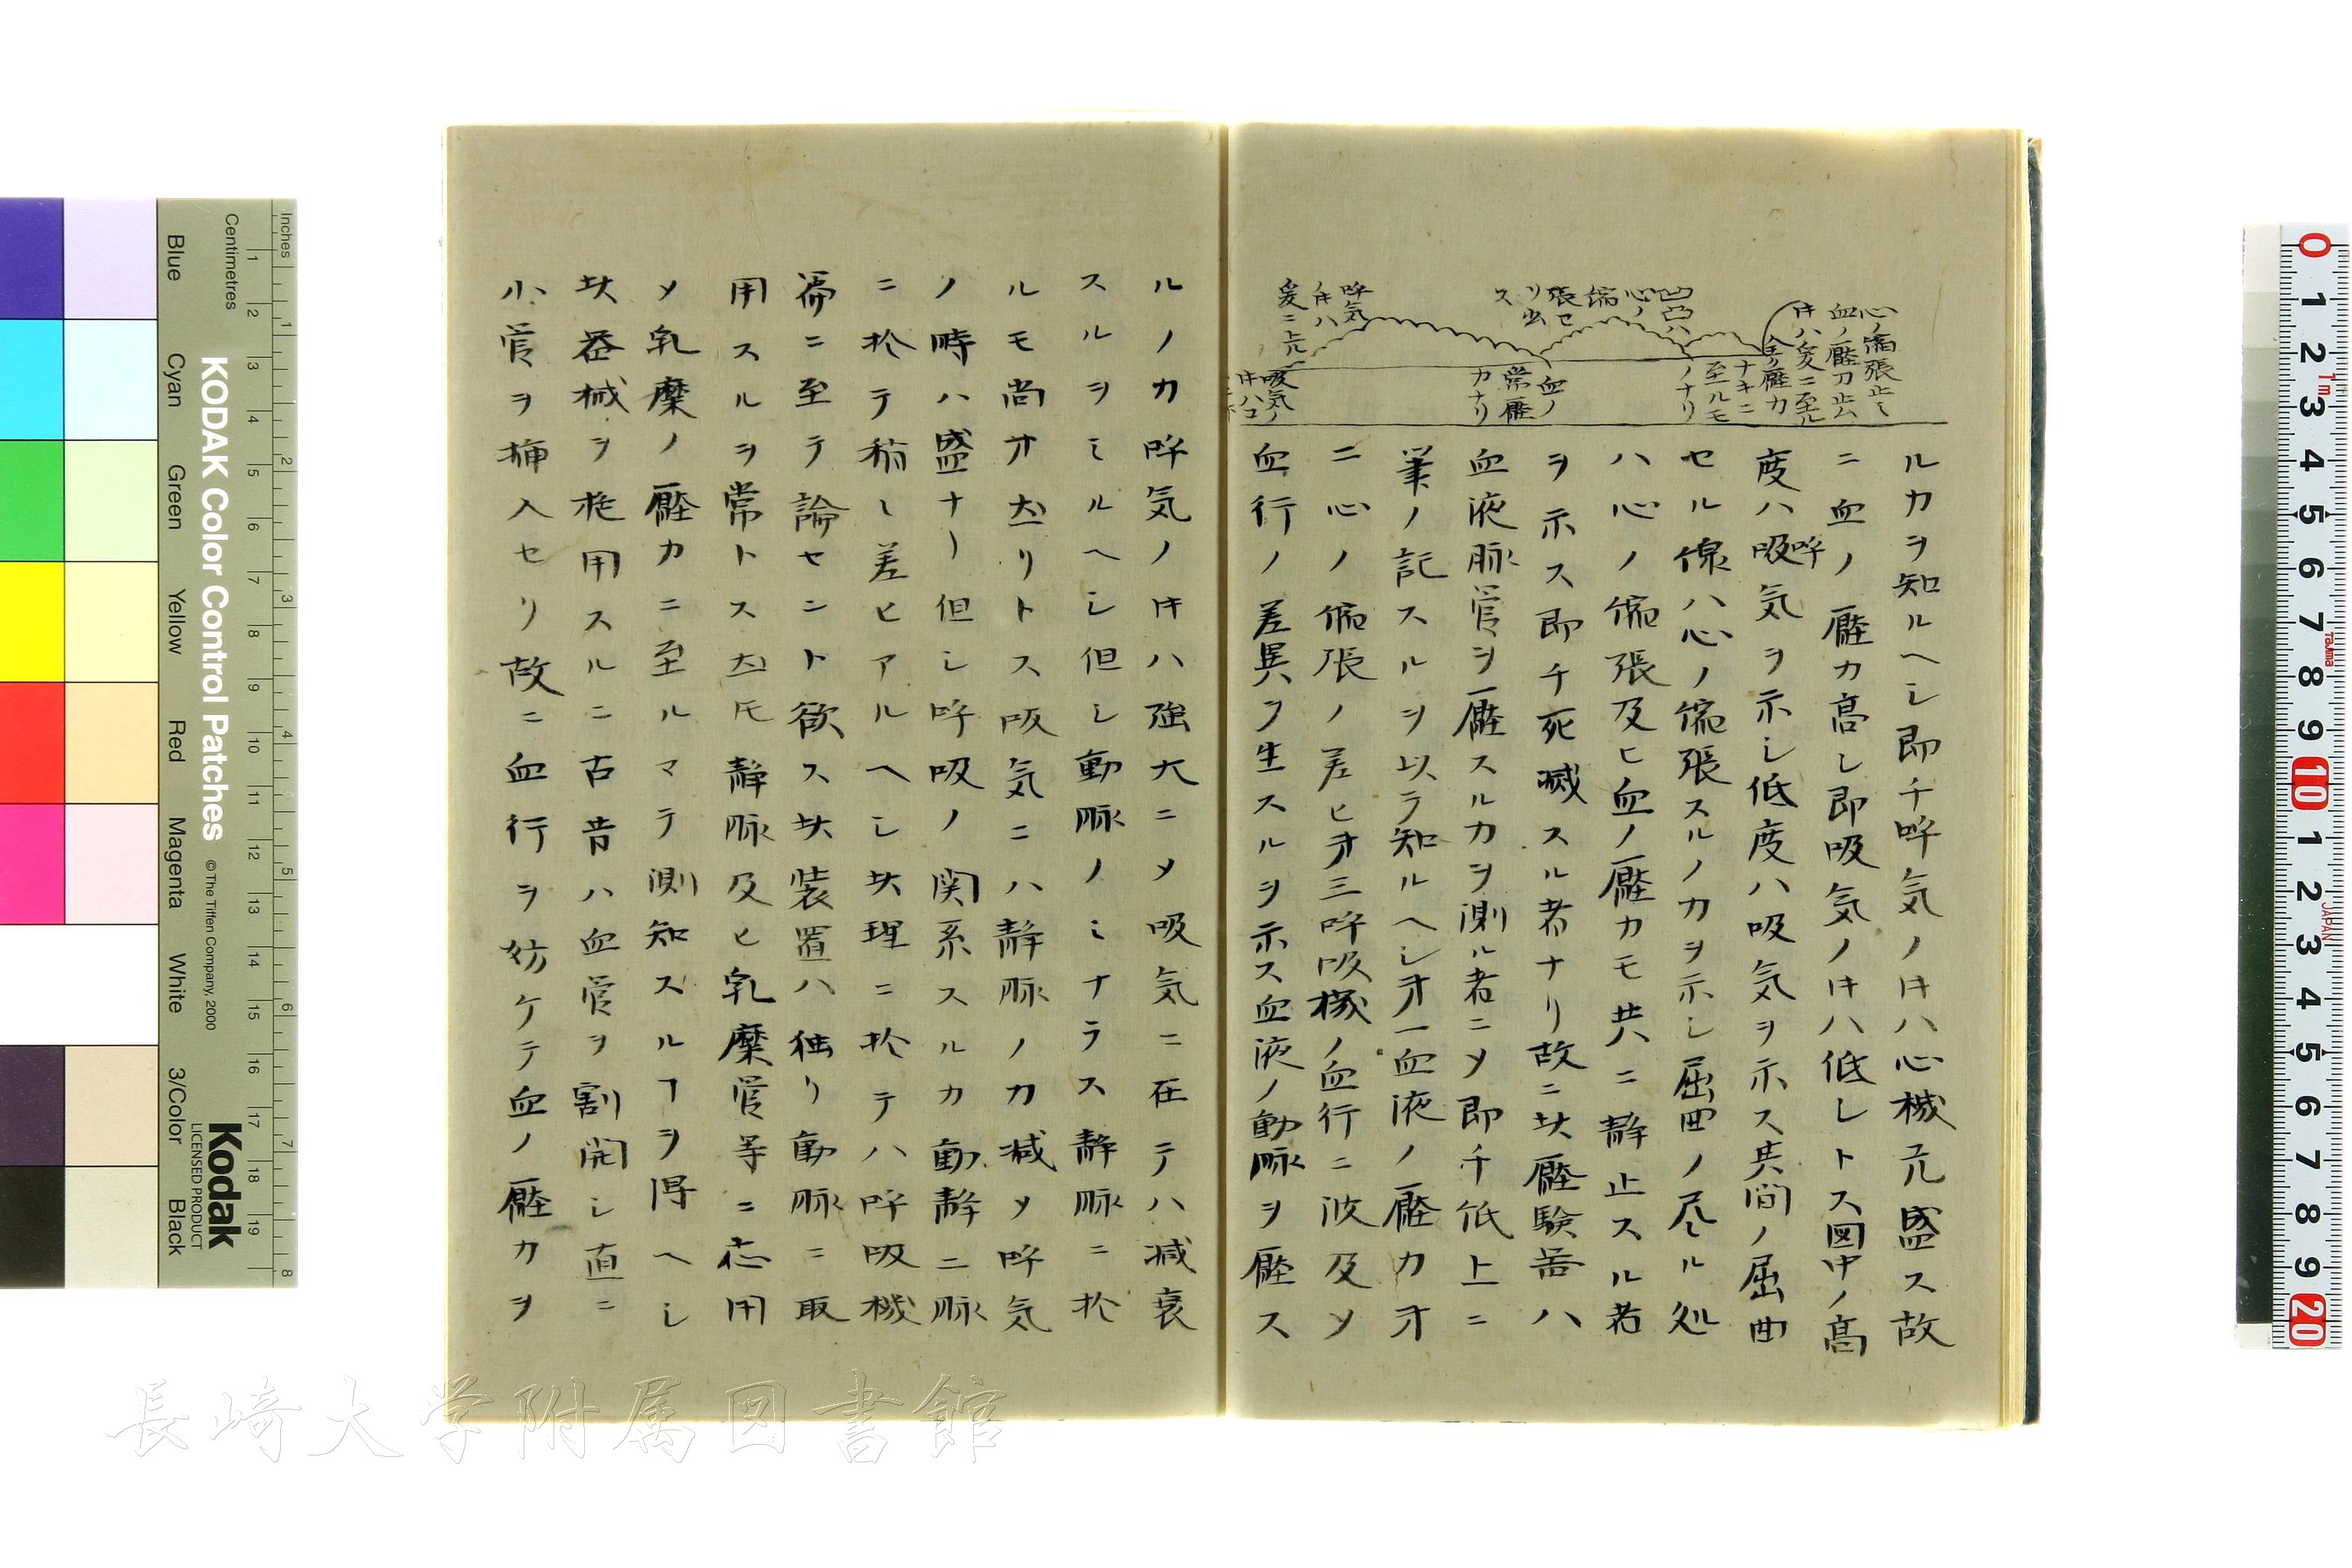 心ノ縮張止ミ
血ノ壓力止ム
片ハ爰ニ至ル
全ク壓力
ナキニ
至ルモ
ノナリ
凹凸ハ
心ノ
縮
張セ
リ出
ス
血ノ
常壓
力ナリ
呼気
ノ片ハ
爰ニ亢
吸気ノ
片ハコ
ルカヲ知ルヘシ即チ呼気ノ片ハ心機亢盛ス故
ニ血ノ壓力高シ即吸気ノ片ハ低シトス図中ノ高
度ハ呼気ヲ示シ低度ハ吸気ヲ示ス其間ノ屈曲
セル線ハ心ノ縮張スルノ力ヲ示シ屈曲ノ尽ル処
ハ心ノ縮張及ヒ血ノ壓力モ共ニ静止スル者
ヲ示ス即チ死滅スル者ナリ故ニ此壓験器ハ
血液脈管ヲ壓スル力ヲ測ル者ニメ即チ低上ニ
筆ノ記スルヲ以テ知ルヘシ才一血液ノ壓力才
二心ノ縮張ノ差ヒ才三呼吸機ノ血行ニ波及メ
血行ノ差異ヲ生スルヲ示ス血液ノ動脈ヲ壓ス
ルノ力呼気ノ片ハ強大ニメ吸気ニ在テハ減衰
スルヲミルヘシ但シ動脈ノミナラス静脈ニ於
ルモ尚オ然リトス吸気ニハ静脈ノ力減メ呼気
ノ時ハ盛ナリ但シ呼吸ノ関系スルカ動静二脈
ニ於テ稍ヽ差ヒアルヘシ此理ニ於テハ呼吸機
篇ニ至テ論セント欲ス此装置ハ独リ動脈ニ取
用スルヲ常トス然モ静脈及ヒ乳糜管等ニ応用
メ乳糜ノ壓力ニ至ルマテ測知スルヿヲ得ヘシ
此器械ヲ施用スルニ古昔ハ血管ヲ割開シ直ニ
小管ヲ挿入セリ故ニ血行ヲ妨ケテ血ノ壓力ヲ
長崎大学附属図書館
Inches
Centimetres
Blue
Cyan
Green
Yellow
Red
Magenta
White
3/Color
Black
KODAK Color Control Patches
© The Tiffen Company, 2000
Kodak
LICENSED PRODUCT
0 1 2 3 4 5 6 7 8 9 10 1 2 3 4 5 6 7 8 9 20
1m
Tajima
JAPAN